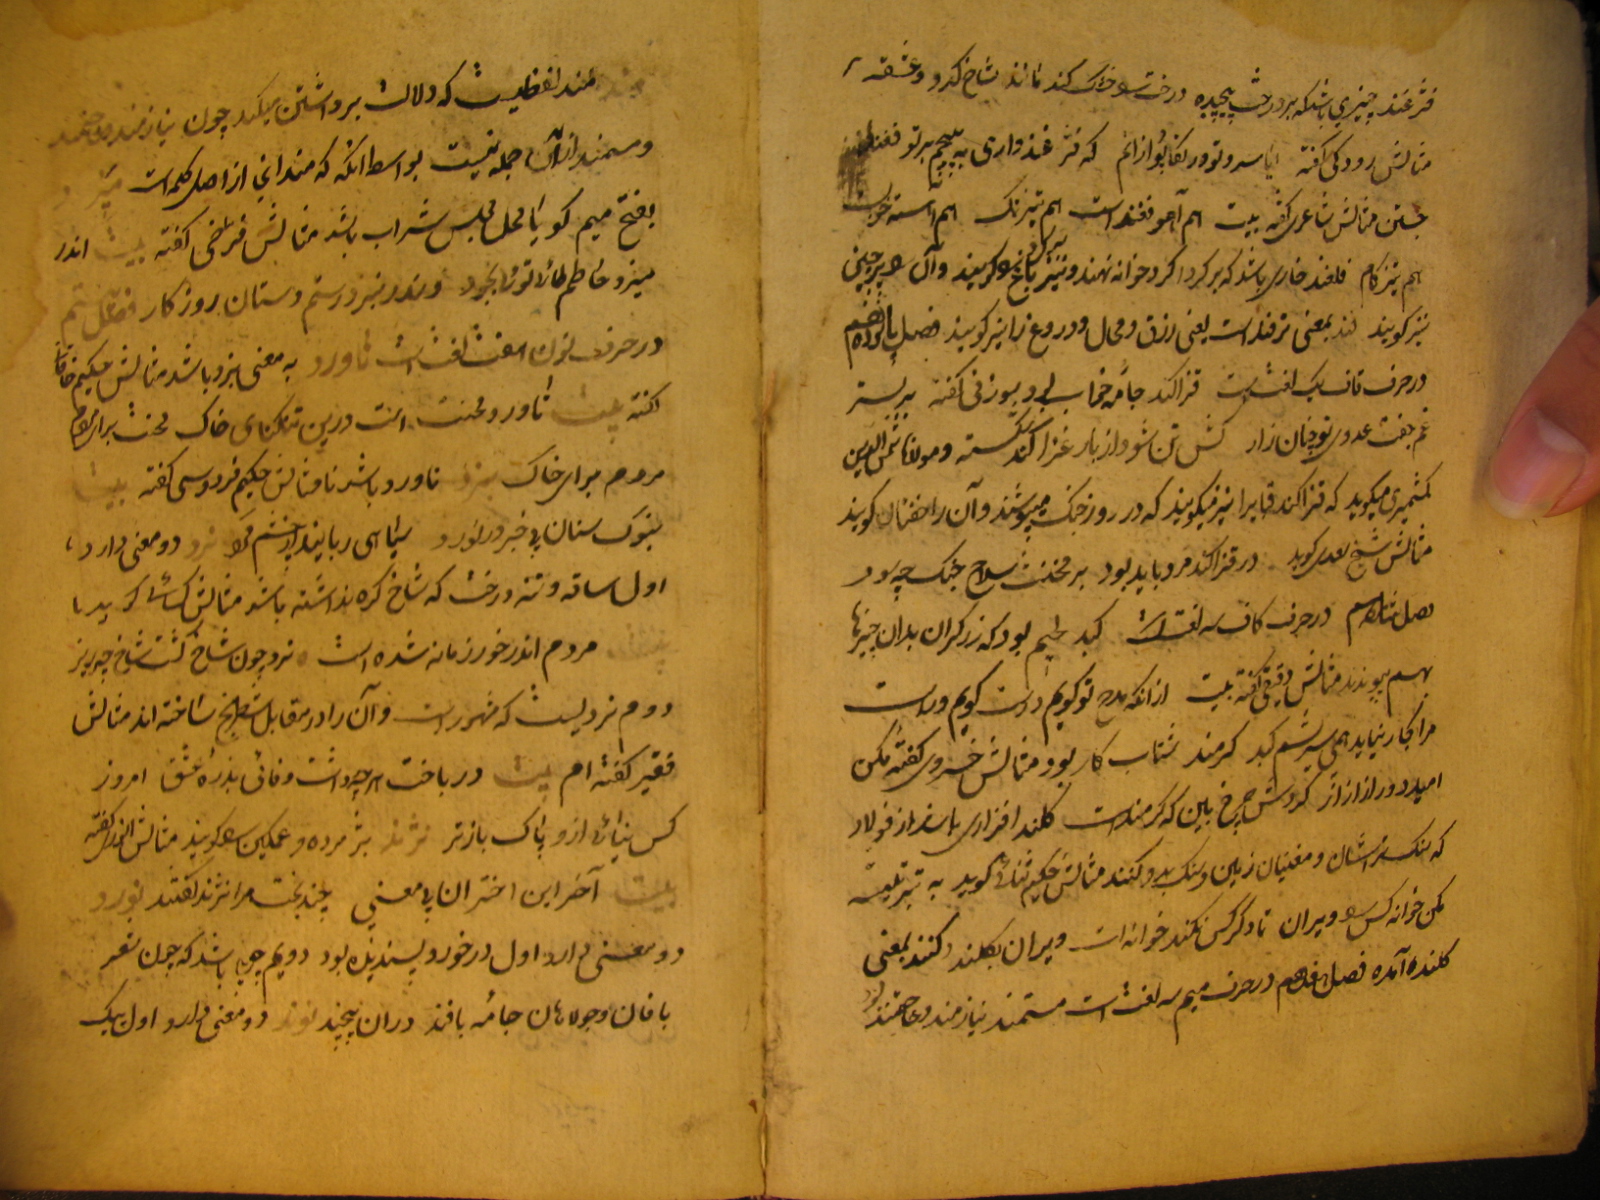 فرغند چیزی باشد که بر درخت پیچیده درخت را خشک کند مانند شاخ کدو و عشقه
مثالش رودکی گفته ایا سرو نو در تکاپوی آنم که فرغندواری بپیچم برتو فغند
جستن مثالش شاعری گفته بیت هم آهو فغند است هم تیزتک هم آهسته خوی است
هم تیزگام فلغند خاری باشد که بر گرداگرد خوانه نهند و نیز باغ را گویند و آن را پرچین
نیز گویند فند بمعنی ترفند است یعنی زرق و محال و دروغ را نیز گویند فصل پانزدهم
در حرف قاف یک لغت است قزاکند جامه خواب سوزنی گفته بر بستر
غم خفت عدوی تو چنان زار کش تن شود از بار غزاکند شکسته و مولانا شمس الدین
کشمیری میگوید که قزاکند قبا را نیز میگویند که در روز جنگ میپوشند و آن را خفتان گویند
مثالش شیخ سعدی گوید در قزاکند مرد باید بود بر مخنث سلاح جنگ چه سود
فصل شانزدهم در حرف کاف سه لغت است کبد لحیم بود که زرگران بدان چیزها
بهم پیوندند مثالش دقیقی گفته بیت از آنکه مدح تو گویم درست گویم و راست
مرا بکار نیاید همی سریشم کبد کرمند شتاب کار بود مثالش خسروی گفته مکن
امید دور از آز گردش چرخ بین که کرمند است کلند افزاری باشد از فولاد
که سنگ تراشان و مغنیان زمین و سنگ بدو کنند مثالش حکیم ثنائی گوید به تبر تیشه
مکن خوانه کس را ویران تا دگر کس نکند خوانه ات ویران بکلند و کنند بمعنی
کلنده آمده فصل هفدهم در حرف میم سه لغت است مستمند نیازمند و حاجتمند بود
مند لفظیست که دلالت بر داشتن میکند چون نیازمند و حاجتمند
و سمند از آن جمله نیست بواسطه آنکه که مندانی از اصل کلمه است میزد
بفتح میم گویا محل مجلس شراب باشد مثالش فرخی گفته بیت اندر
میزد حاطم طائی توئی بجود وندر نبرد رستم دستان روزگار فصل
در حرف نون هفت لغت است ناورد به معنی نبرد باشد مثالش حکیم خاقا
گفته بیت ناورد محنت است درین تنگنای خاک محنت برای
مردم مردم برای خاک نبرد ناورد باشد نامثالش حکیم فردوسی گفته بیت
بنوک سنان بی خبر در نورد سیاهی رباییند از چشم مرد نرد دو معنی دارد
اول ساقه و تنه درخت که شاخ گره نداشته باشد مثالش کسائی گوید
مردم اندر خور زمانه شده است نرد چون شاخ گشت شاخ چو نرد
دوم نردیست که مشهور است و آن را در مقابل شطرنج ساخته اند مثالش
فقیر گفته ام بیت در باخت هرچه داشت وفائی بنرد عشق امروز
کس نیائی ازو پاک بازتر نژند پژمرده و غمگین را گویند مثالش انوری گفته
بیت آخر این اختران بی معنی چند بخت مرا نژند کنند نورد
دو معنی دارد اول در خورد پسندیده بود دویم چوبی باشد که چون نقر
بافان و جولاهان جامه بافند در آن پیچند نوند دو معنی دارد اول پیک